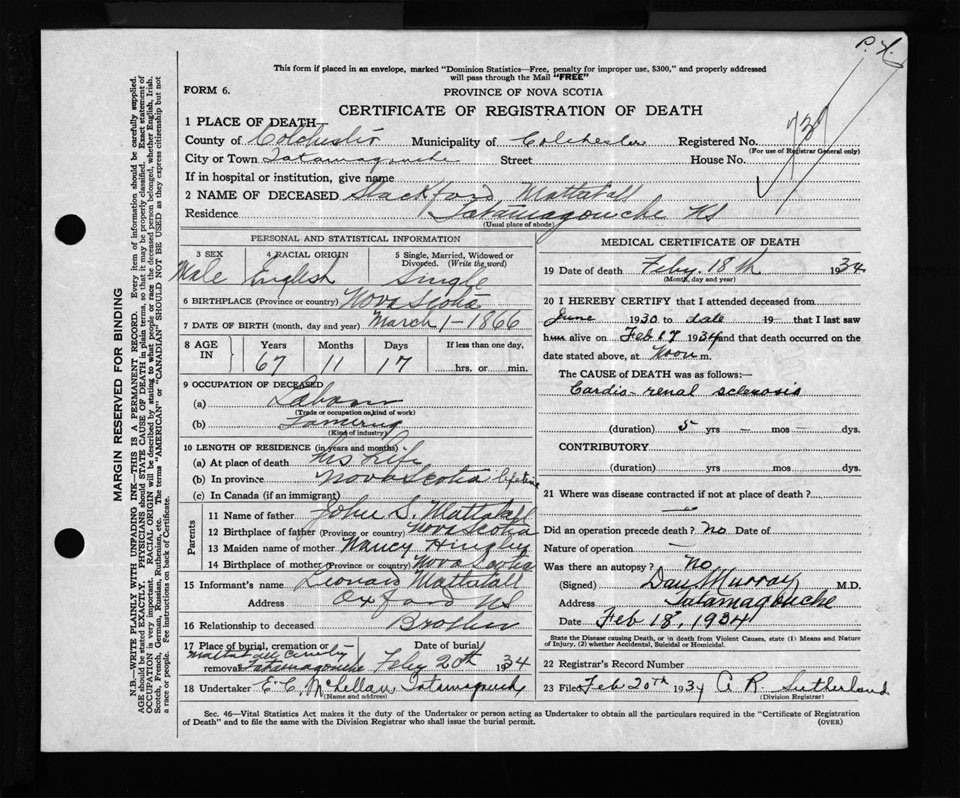 P. H.
This form if placed in an envelope, marked "Dominion Statistics—Free, penalty for improper use, $300," and properly addressed
will pass through the Mail "FREE"
FORM 6.
PROVINCE OF NOVA SCOTIA
CERTIFICATE OF REGISTRATION OF DEATH
1 PLACE OF DEATH—
County of Colchester Municipality of Colchester Registered No.
(For use of Registrar General only)
City or Town Tatamagouche Street House No.
If in hospital or institution, give name
2 NAME OF DECEASED Stackford Mattatall
Residence Tatamagouche NS
(Usual place of abode)
PERSONAL AND STATISTICAL INFORMATION
3 SEX 4 RACIAL ORIGIN 5 Single, Married, Widowed or Divorced. (Write the word)
Male English Single
6 BIRTHPLACE (Province or country) Nova Scotia
7 DATE OF BIRTH (month, day and year) March 1-1866
8 AGE IN Years Months Days If less than one day,
67 11 17 hrs. or min.
9 OCCUPATION OF DECEASED
(a) Labour
(Trade or occupation or kind of work)
(b)
(Kind of industry)
10 LENGTH OF RESIDENCE (in years and months)
(a) At place of death his Life
(b) In province Nova Scotia lifetime
(c) In Canada (if an immigrant)
Parents
11 Name of father John S. Mattatall
12 Birthplace of father (Province or country) Nova Scotia
13 Maiden name of mother Nancy Hingley
14 Birthplace of mother (Province or country) Nova Scotia
15 Informant's name Leonard Mattatall
Address Oxford NS
16 Relationship to deceased Brother
17 Place of burial, cremation or removal Date of burial
Mattatall Cemetery
Tatamagouche Feby 20th 1934
18 Undertaker E. C. McLellan, Tatamagouche
(Name and address)
MEDICAL CERTIFICATE OF DEATH
19 Date of death Feby. 18th 1934
(Month, day and year)
20 I HEREBY CERTIFY that I attended deceased from
June 1930 to date 19 that I last saw
him alive on Feb 17 1934 and that death occurred on the
date stated above, at Noon m.
The CAUSE OF DEATH was as follows:—
Cardio-renal sclerosis
(duration) 5 yrs — mos — dys.
CONTRIBUTORY
(duration) yrs. mos. dys.
21 Where was disease contracted if not at place of death?
—
Did an operation precede death? no Date of
Nature of operation —
Was there an autopsy? No
(Signed) Dan Murray M.D.
Address Tatamagouche
Date Feb 18, 1934
State the Disease causing Death, or in death from Violent Causes, state (1) Means and Nature
of Injury, (2) whether Accidental, Suicidal or Homicidal.
22 Registrar's Record Number
23 Filed Feb 20th 1934 A R Sutherland
(Division Registrar)
Sec. 46—Vital Statistics Act makes it the duty of the Undertaker or person acting as Undertaker to obtain all the particulars required in the "Certificate of Registration
of Death" and to file the same with the Division Registrar who shall issue the burial permit.
(OVER)
MARGIN RESERVED FOR BINDING
N.B.—WRITE PLAINLY WITH UNFADING INK—THIS IS A PERMANENT RECORD. Every item of information should be carefully supplied.
AGE should be stated EXACTLY. PHYSICIANS should STATE CAUSE OF DEATH in plain terms, so that it may be properly classified. Exact statement of
OCCUPATION is very important. RACIAL ORIGIN will be described by stating to what people or race the deceased person belonged, whether English, Irish,
Scotch, French, German, Russian, Ruthenian, etc. The terms "AMERICAN" or "CANADIAN" SHOULD NOT BE USED as they express citizenship but not
a race or people. See instructions on back of Certificate.